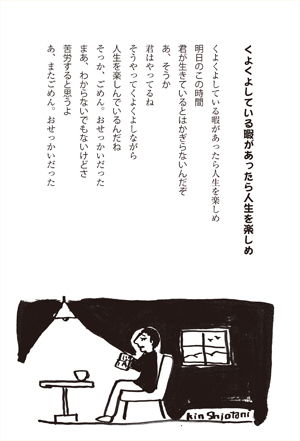 くよくよしている暇があったら人生を楽しめ
くよくよしている暇があったら人生を楽しめ
明日のこの時間
君が生きているとはかぎらないんだぞ
あ、そうか
君はやってるね
そうやってくよくよしながら
人生を楽しんでいるんだね
そっか、ごめん。おせっかいだった
まあ、わからないでもないけどさ
苦労すると思うよ
あ、またごめん。おせっかいだった
Kin Shiotani